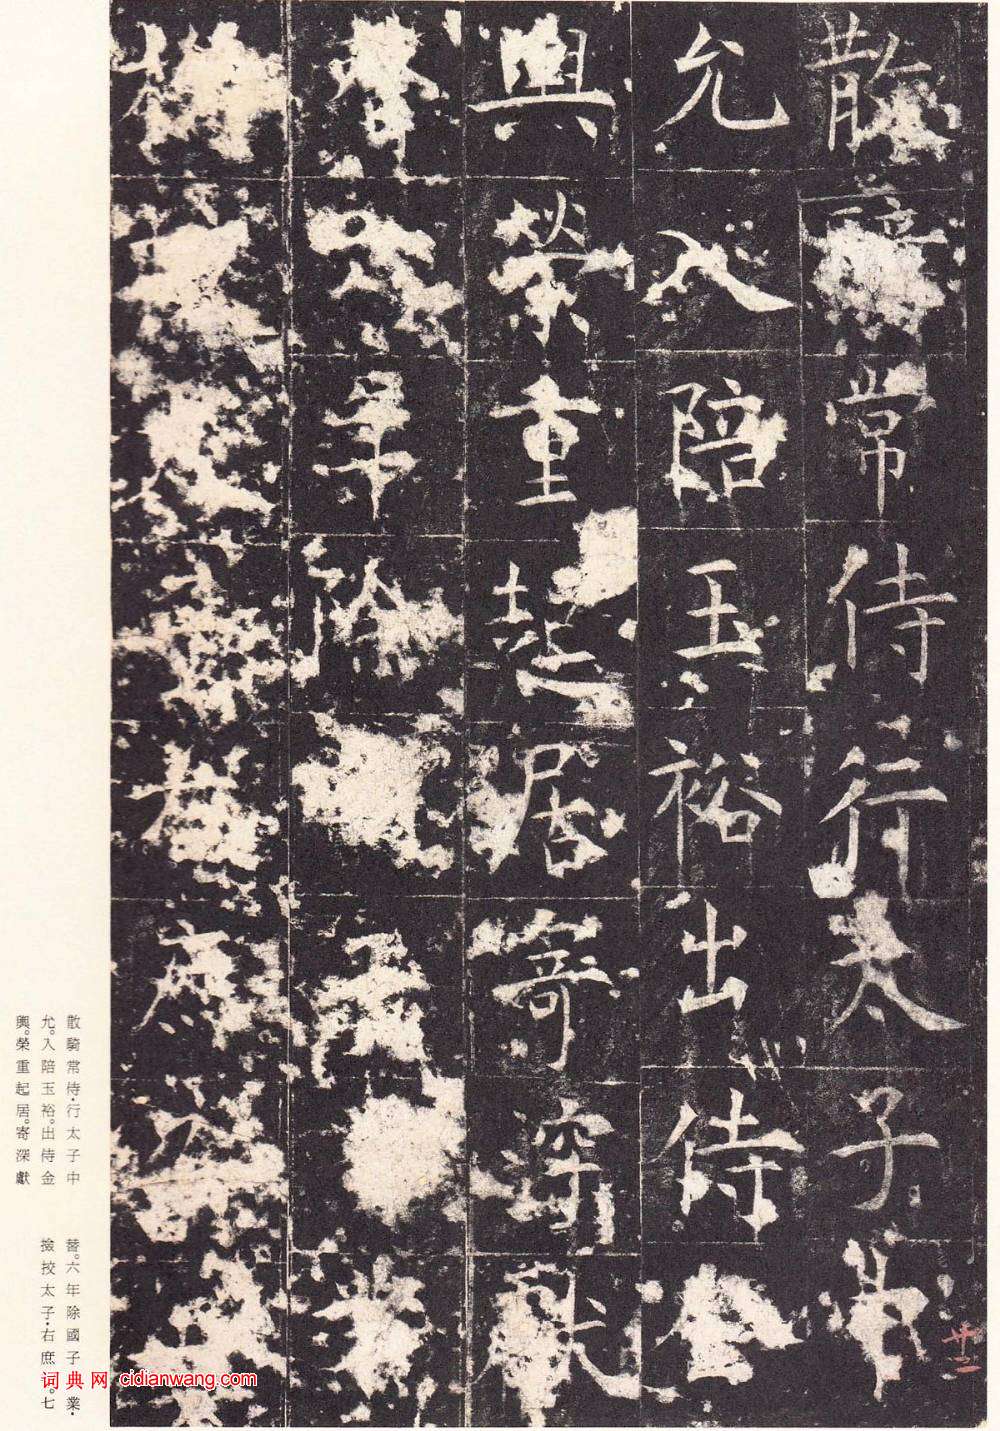 散騎常侍行太子中
允入陪玉裕出侍金
輿榮重起居寄深獻
替六年除業
右庶
散騎常侍·行太子中
允。入陪玉裕。出侍金
輿。榮重起居。寄深獻
替。六年除國子業·
撿挍太子·右庶。七
廿二
词典网 cidianwang.com